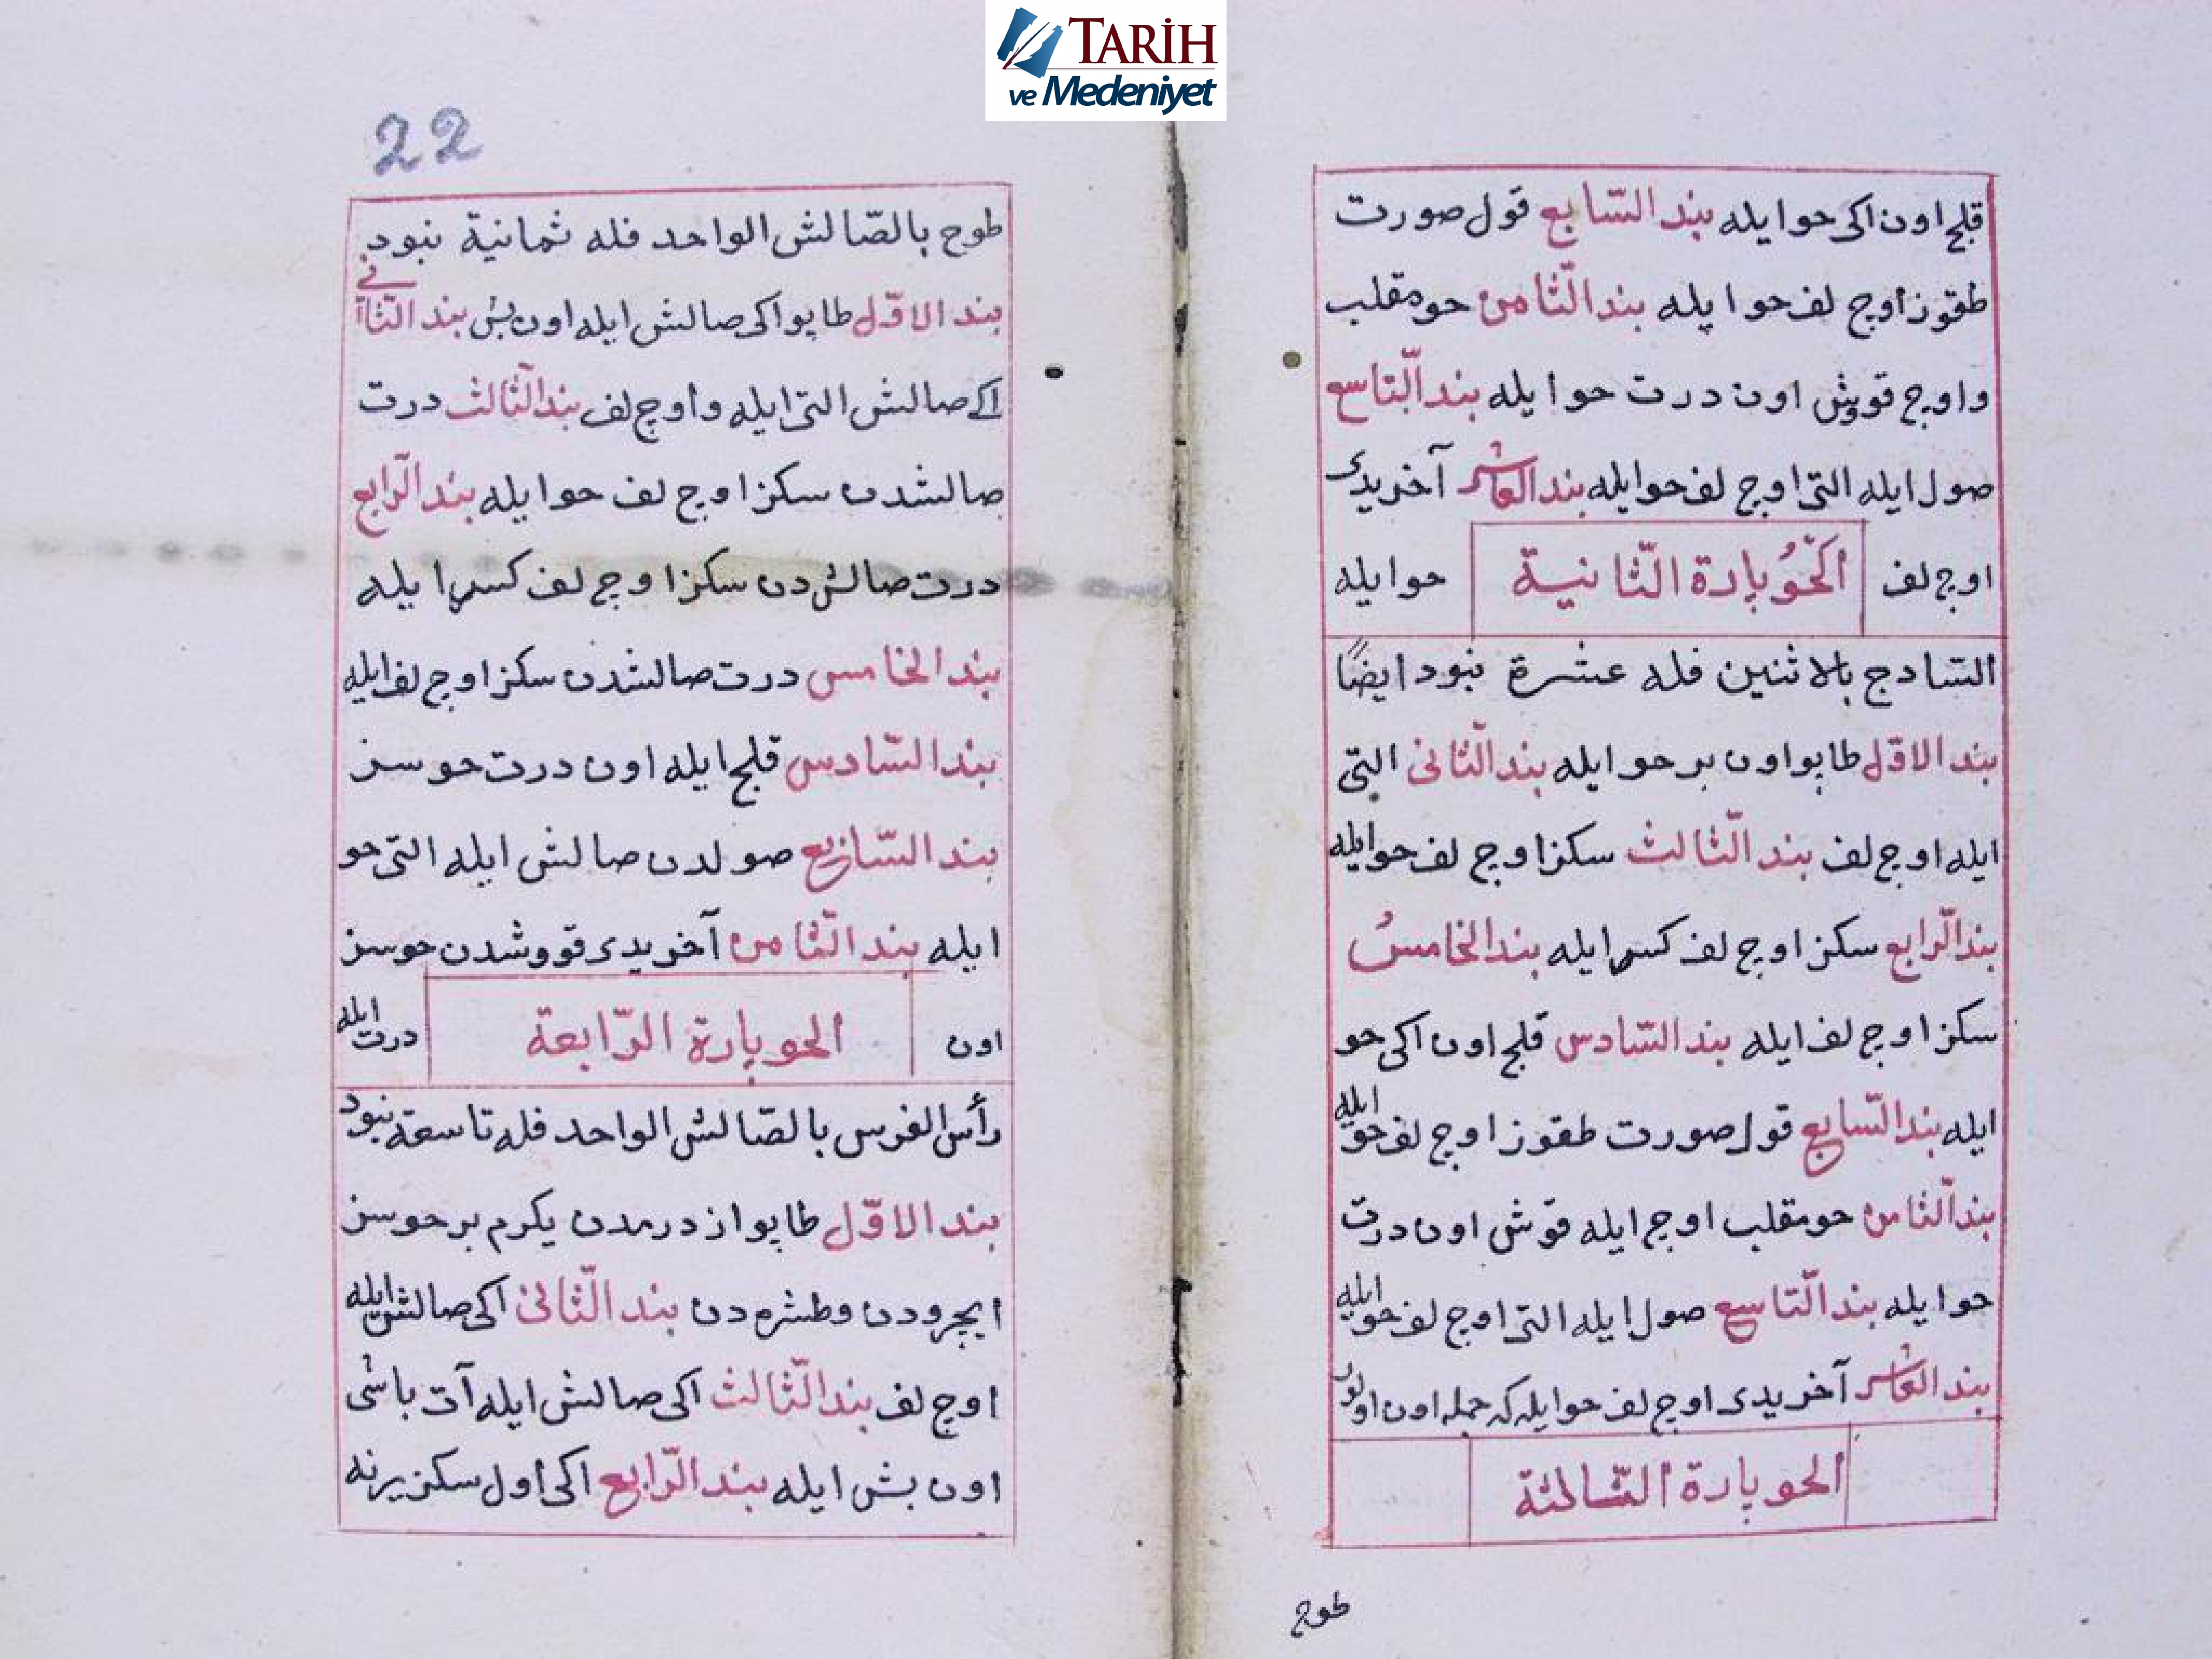 TARİH
ve Medeniyet
قلج اون اكی حو ایله بند السّابع قول صورت
طقوز اوج لف حو ایله بند الثّامن حو مقلب
و اوج قووش اون درت حو ایله بند التّاسع
صول ایله التی اوج لف حو ایله بند العاشر آخر یدی
اوج لف الحَوُبارة الثّانیة حو ایله
السّادج بالاثنین فله عشرة بنود ایضًا
بند الاوّل طاپو اون بر حو ایله بند الثّانی التی
ایله اوج لف بند الثّالث سكز اوج لف حو ایله
بند الرّابع سكز اوج لف كسر ایله بند الخامس
سكز اوج لف ایله بند السّادس قلج اون اكی حو
ایله بند السّابع قول صورت طقوز اوج لف حو ایله
بند الثّامن حو مقلب اوج ایله قوش اون درت
حو ایله بند التّاسع صول ایله التی اوج لف حو ایله
بند العاشر آخر یدی اوج لف حو ایله كه جمله اون اولور
الحوبارة الثّالثة
طوج
22
طوج بالصّالش الواحد فله ثمانیة بنود
بند الاوّل طاپو اكی صالش ایله اون بش بند الثّانی
اكی صالش التی ایله و اوج لف بند الثّالث درت
صالشدن سكز اوج لف حو ایله بند الرّابع
درت صالش دن سكز اوج لف كسر ایله
بند الخامس درت صالشدن سكز اوج لف ایله
بند السّادس قلج ایله اون درت حوسز
بند السّابع صولدن صالش ایله التی حو
ایله بند الثّامن آخر یدی قووشدن حوسز
اون الحوبارة الرّابعة درت ایله
رأس الفرس بالصّالش الواحد فله تاسعة بنود
بند الاوّل طاپو از درمدن یكرم بر حوسز
ایچرودن و طشره دن بند الثّانی اكی صالش ایله
اوج لف بند الثّالث اكی صالش ایله آت باشی
اون بش ایله بند الرّابع اكی اول سكز یرنه